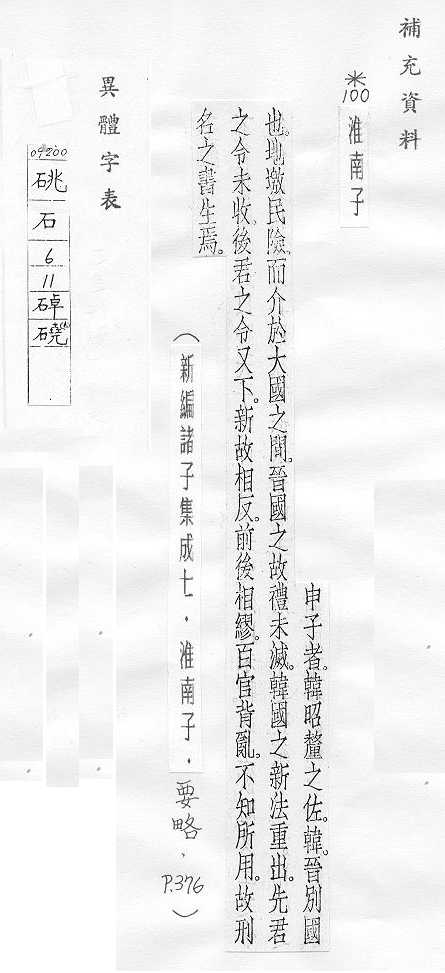 補充資料
*100
淮南子
申子者。韓昭釐之佐。韓。晉別國
也。地墽民險。而介於大國之間。晉國之故禮未滅。韓國之新法重出。先君
之令未收。後君之令又下。新故相反。前後相繆。百官背亂。不知所用。故刑
名之書生焉。
(新編諸子集成七．淮南子．要略、P.376)
異體字表
09200
硗
石
6
11
䂽
磽